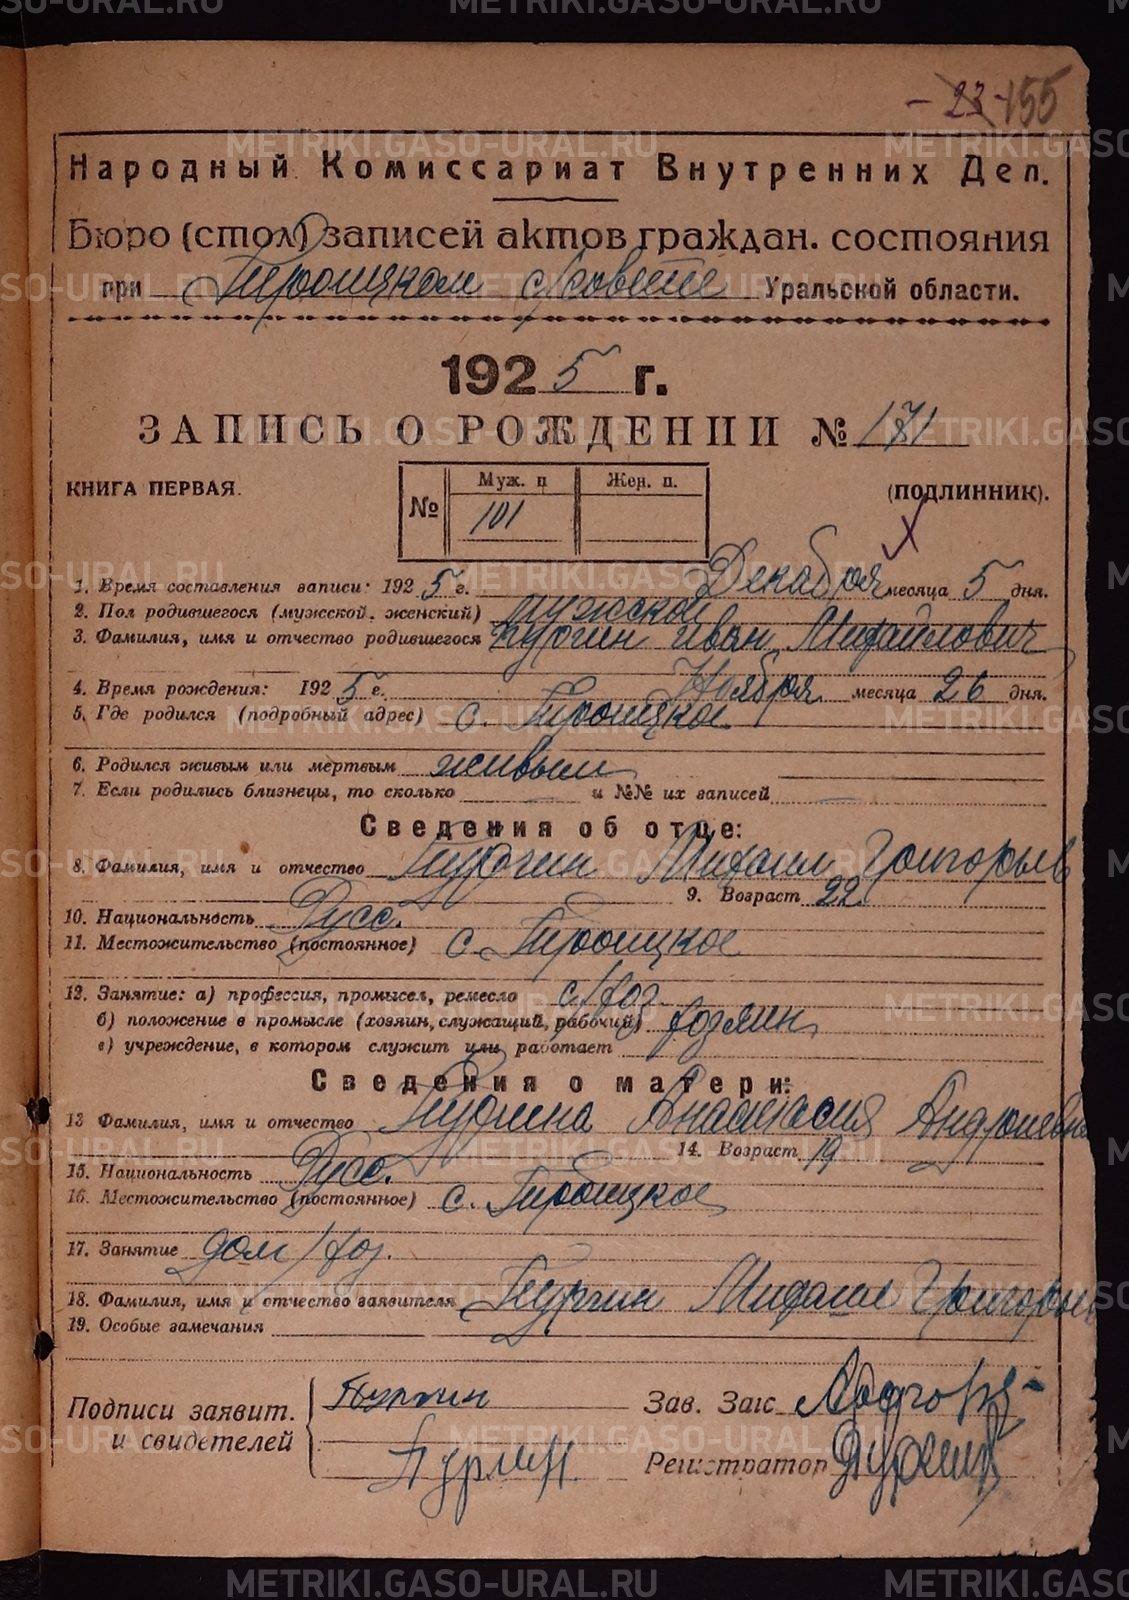 METRIKI.GASO-URAL.RU
- 23 - 155
Народный Комиссариат Внутренних Дел.
Бюро (стол) записей актов граждан. состояния
при Троицком с/совете Уральской области.
1925 г.
ЗАПИСЬ О РОЖДЕНИИ № 171
КНИГА ПЕРВАЯ.
(ПОДЛИННИК).
№ Муж. п Жен. п.
101
1. Время составления записи: 1925 г. Декабря месяца 5 дня.
2. Пол родившегося (мужской, женский) мужской
3. Фамилия, имя и отчество родившегося Пургин Иван Михайлович
4. Время рождения: 1925 г. Ноября месяца 26 дня.
5. Где родился (подробный адрес) с. Троицкое
6. Родился живым или мертвым живым
7. Если родились близнецы, то сколько и №№ их записей
Сведения об отце:
8. Фамилия, имя и отчество Пургин Михаил Григорьев
9. Возраст 22
10. Национальность Русс.
11. Местожительство (постоянное) с. Троицкое
12. Занятие: а) профессия, промысел, ремесло с/хоз.
б) положение в промысле (хозяин, служащий, рабочий) хозяин
в) учреждение, в котором служит или работает
Сведения о матери:
13 Фамилия, имя и отчество Пургина Анастасия
14. Возраст 19
15. Национальность Русс.
16. Местожительство (постоянное) с. Троицкое
17. Занятие дом/хоз.
18. Фамилия, имя и отчество заявителя Пургин Михаил Григорьев
19. Особые замечания
Подписи заявит. и свидетелей
Пургин
Пургин
Зав. Загс
Регистратор
METRIKI.GASO-URAL.RU